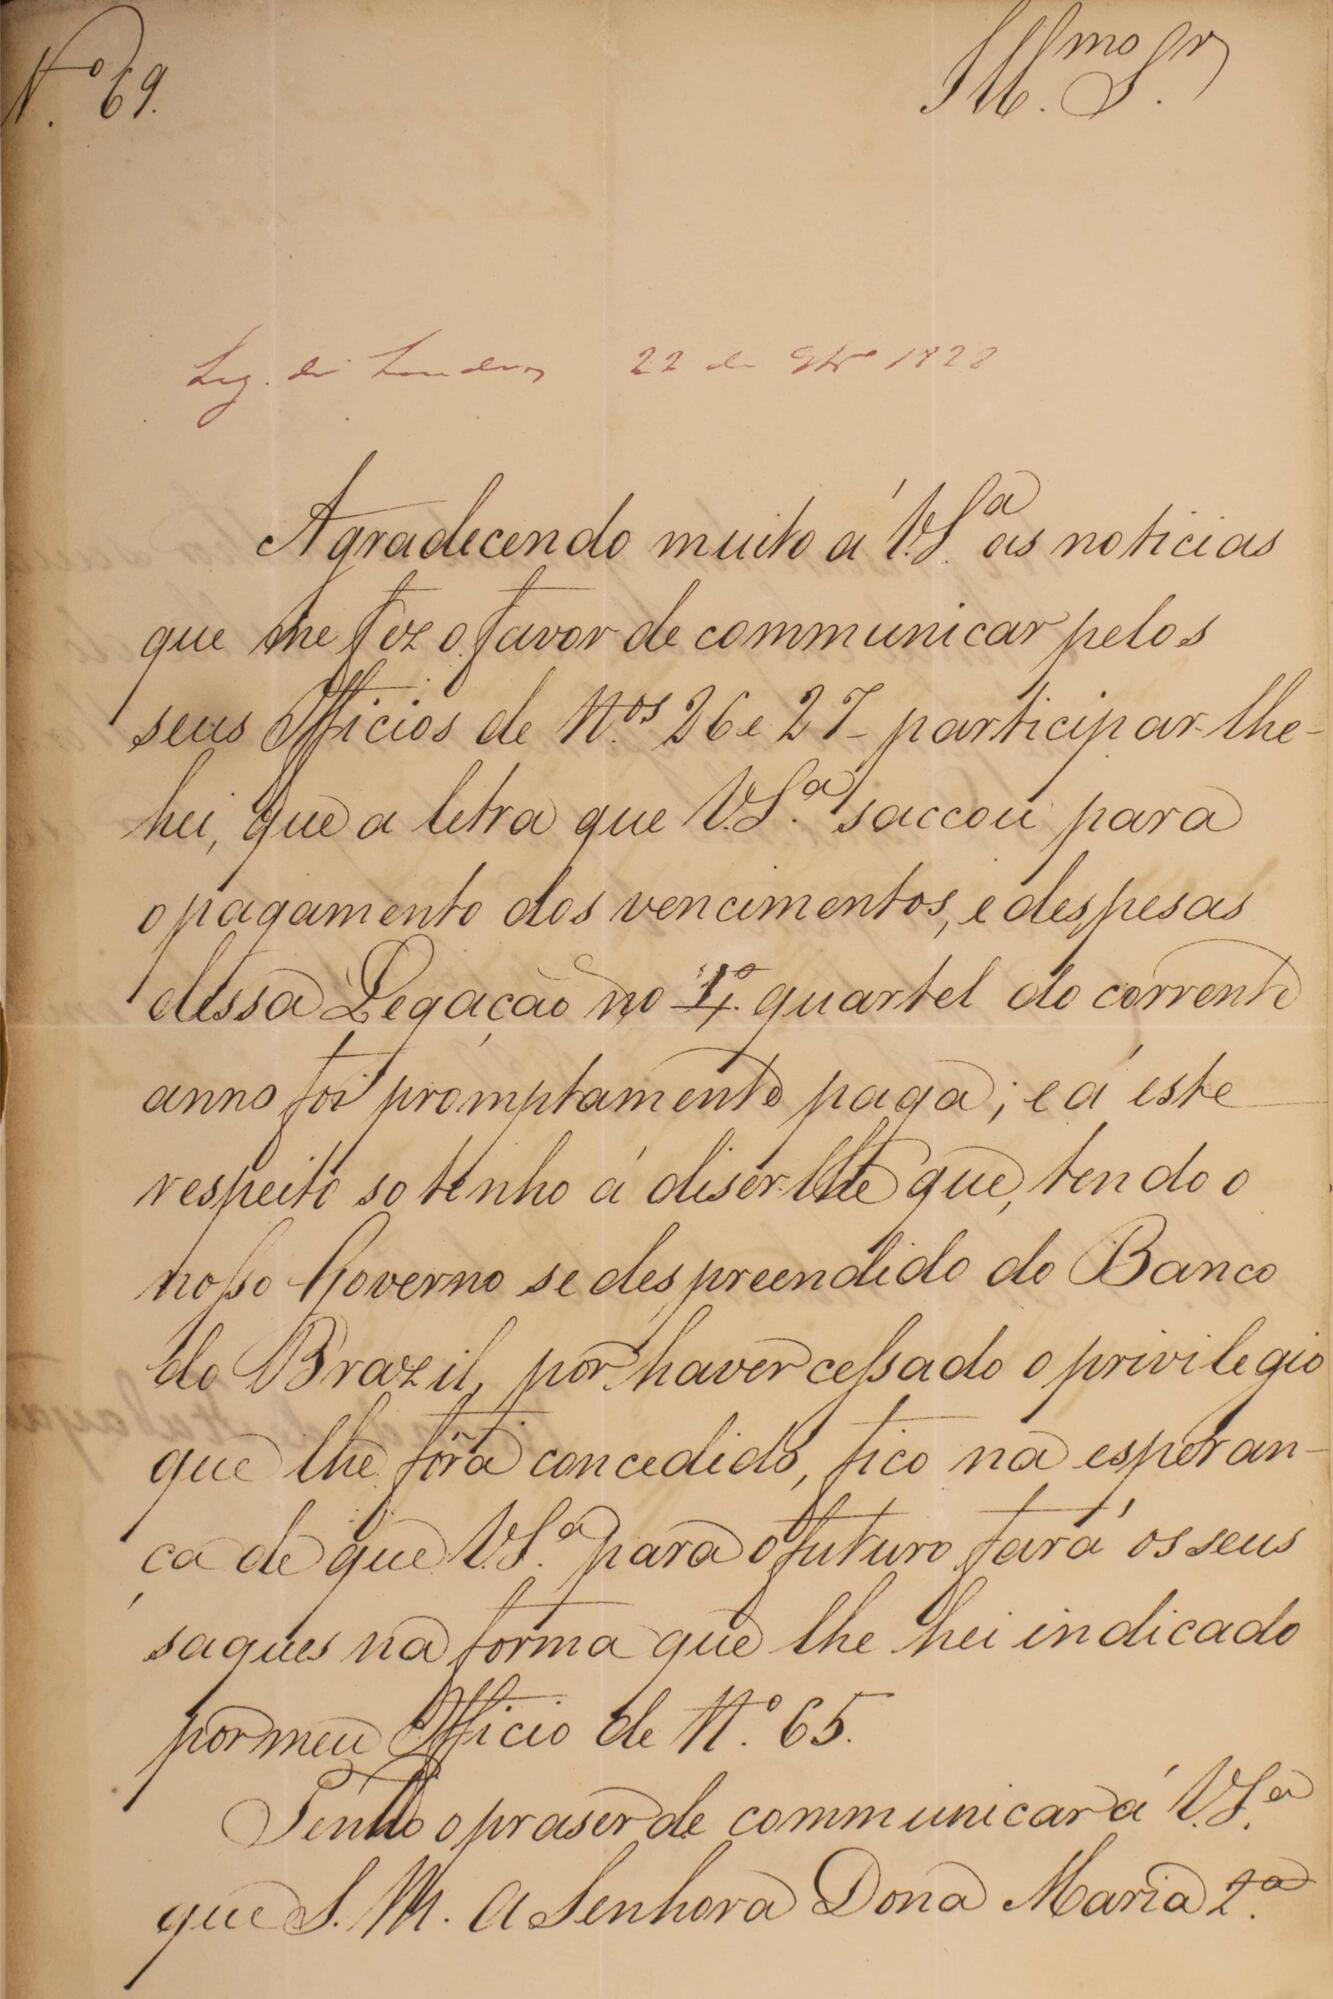 N.º 69.
Ill.mo Sr
Leg. de Londres 22 de 9bro 1828
Agradecendo muito á V.S.ª as noticias
que me fez o favor de communicar pelos
seus Officios de N.os 26 e 27 - participar-lhe-
hei, que a letra que V.S.ª saccou para
o pagamento dos vencimentos, e despesas
dessa Legação no quartel do corrente
anno foi promptamente paga; e á este
respeito so tenho á diser-lhe que, tendo o
nosso Governo se despreendido do Banco
do Brazil, por haver cessado o privilegio
que lhe fôra concedido, fico na esperan-
ça de que V.S.ª para o futuro fará os seus
saques na forma que lhe hei indicado
por meu Officio de N.º 65.
Tenho o praser de communicar á V.S.ª
que S.M. a Senhora Dona Maria 2.ª